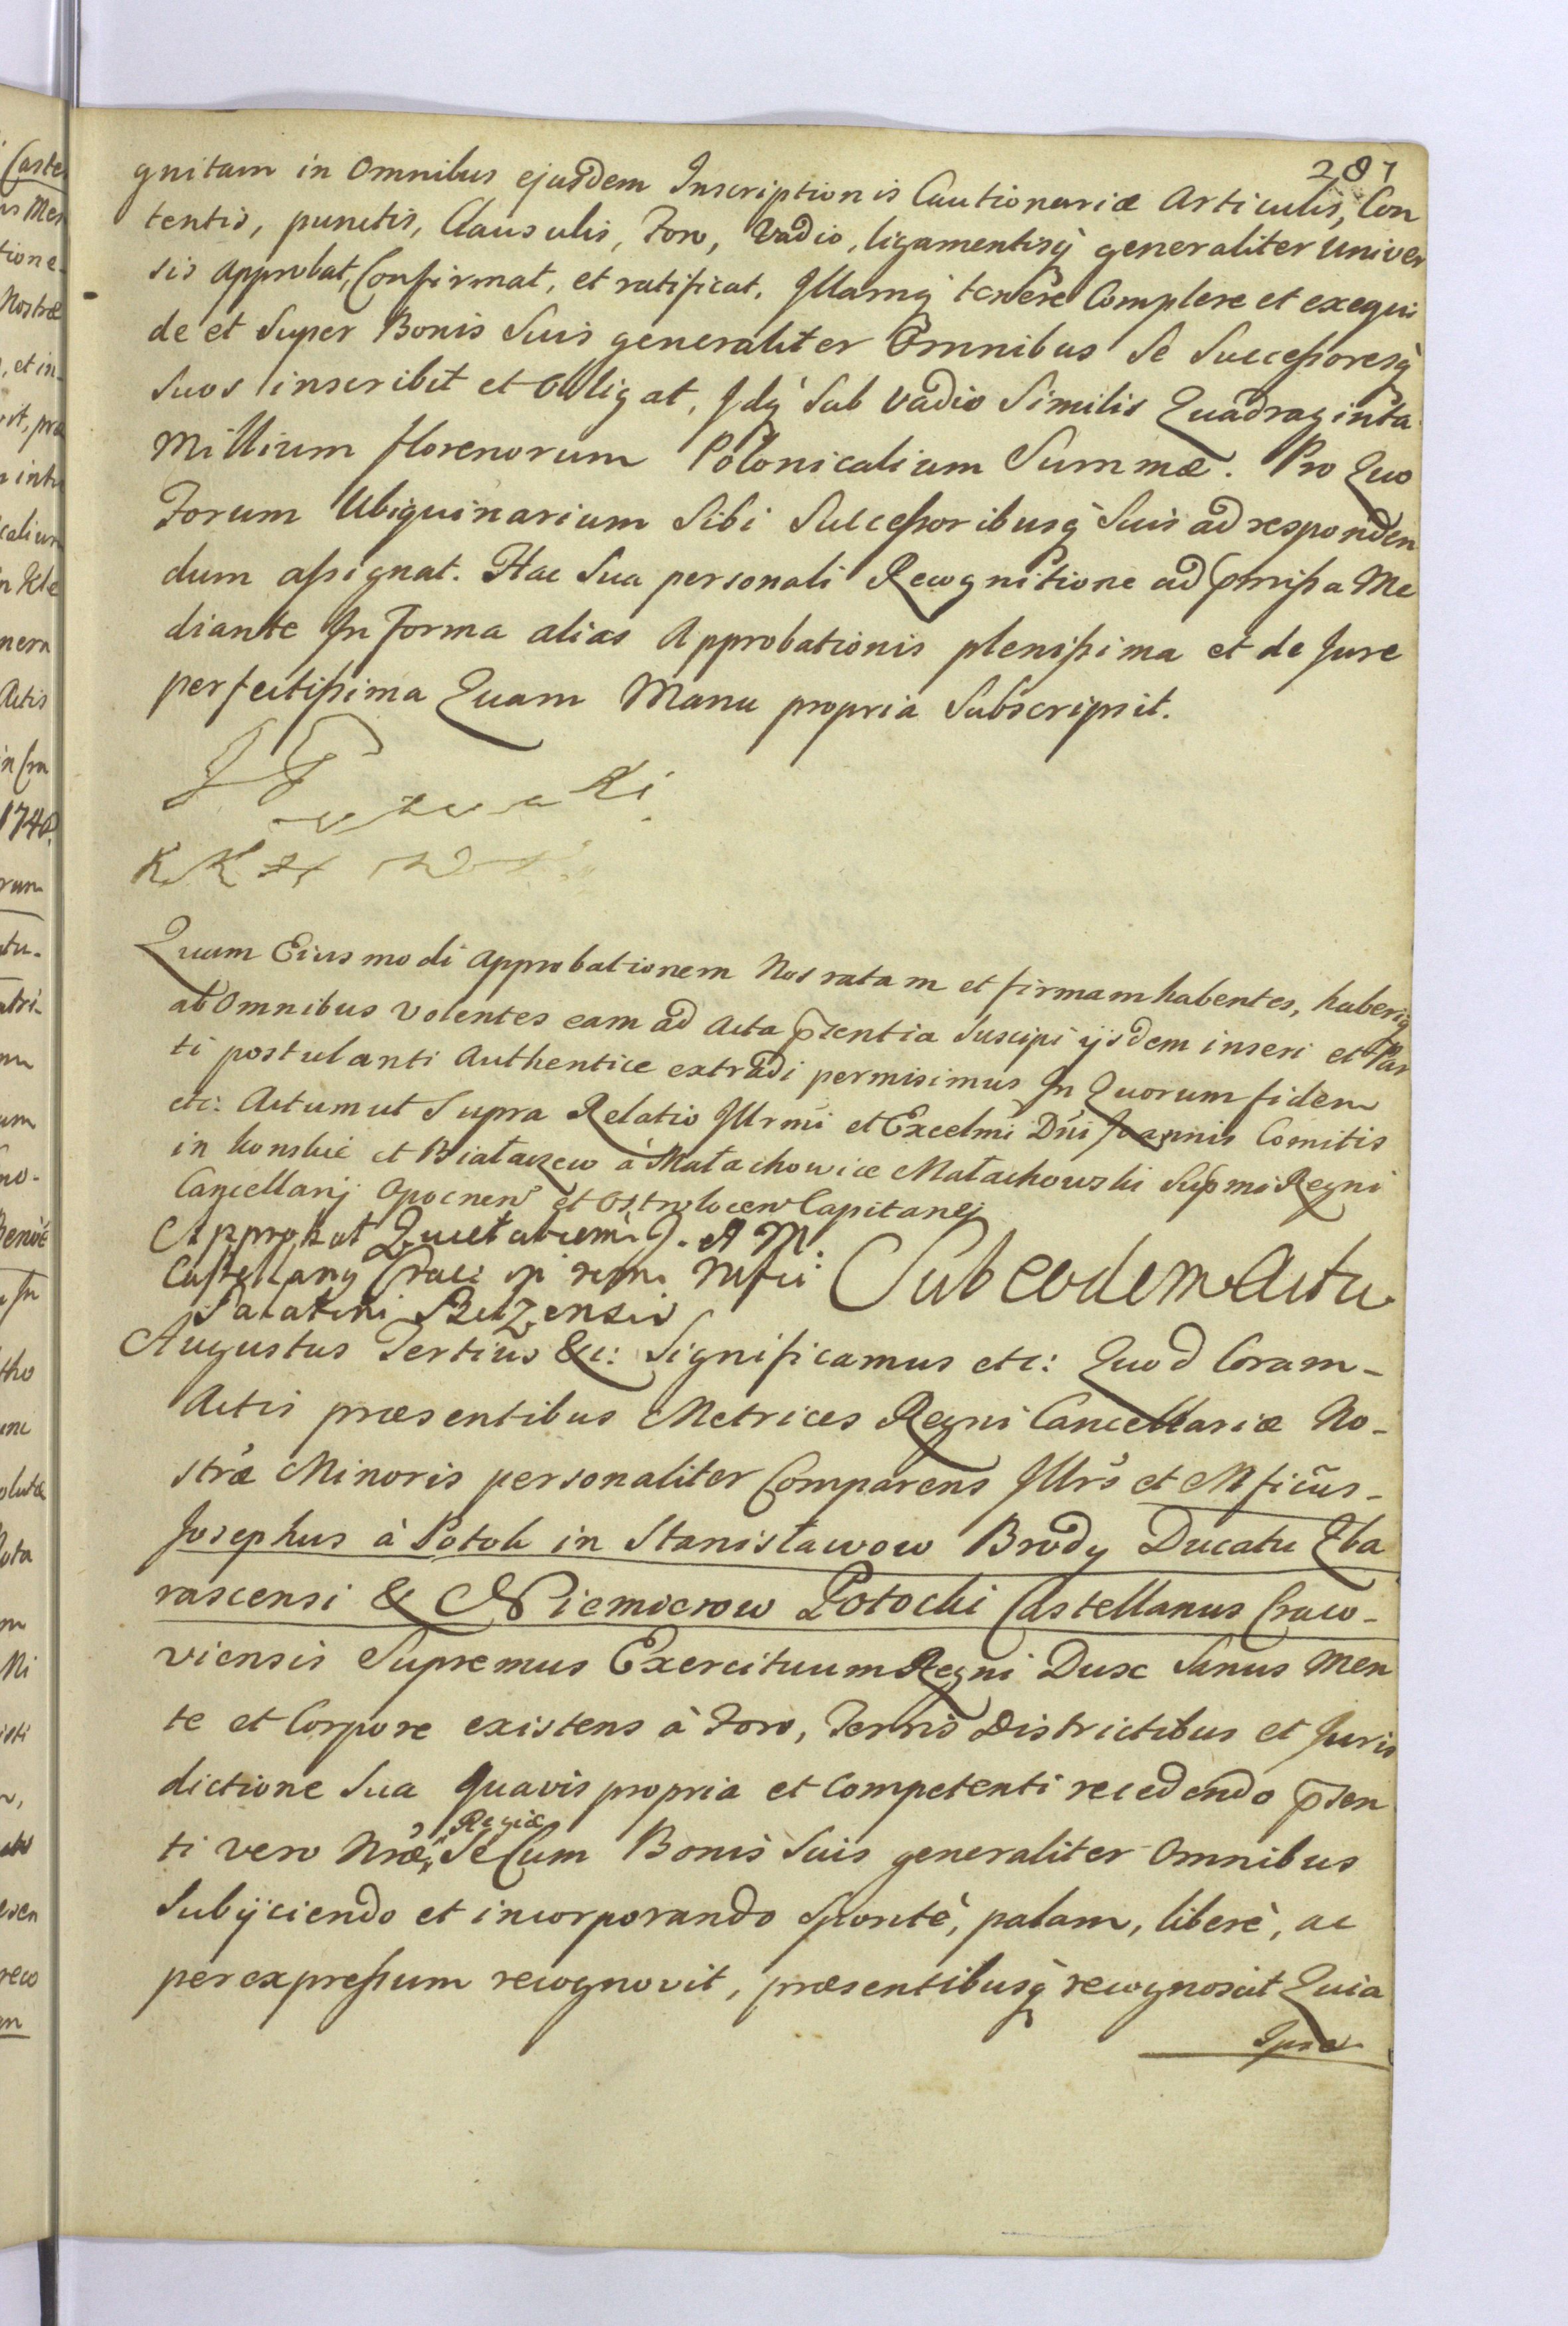 287
gnitam in Omnibus ejusdem Inscriptionis Cautionariæ Articulis, Con
tentis, punctis, Clausulis, Foro, Vadio, ligamentisq̀ generaliter Univer
sis Approbat, Confirmat, et ratificat. Illamq̀ tenere Complere et exequi
de et Super Bonis Suis generaliter Omnibus Se Successoresq̀
Suos inscribit et Obligat, Idq̀ Sub Vadio Similis Quadraginta
Millium florenorum Polonicalium Summæ. Pro Quo
Forum Ubiquinarium Sibi Successoribusq̀ Suis ad responden
dum assignat. Hac Sua personali Recognitione ad p̄missa Me
diante In Forma alias Approbationis plenissima et de Jure
perfectissima Quam Manu propria Subscripsit.
Quam Eiusmodi Approbationem Nos ratam et firmam habentes, haberiq̀
ab Omnibus Volentes eam ad Acta p̄sentia Suscipi ijsdem inseri et Par
ti postulanti Authentice extradi permisimus In Quorum fidem
etc: Actum ut Supra Relatio Illrmi et Excelmi Dni Joannis Comitis
in Konskie et Białaczew à Małachowice Małachowski Supmi Regni
Cancellarij Opocnen et Ostrolocen Capitanej
Approbat Quietatiem J. A M
Castellany Crac in rem Mfci
Palatini Belzensis
Sub eodem Actu
Augustus Tertius &c: Significamus etc: Quod Coram-
Actis præsentibus Metrices Regni Cancellariæ No-
stræ Minoris personaliter Comparens Illrs et Mficus-
Josephus à Potok in Stanisławow Brody Ducatu Zba
rascensi & Niemierow Potocki Castellanus Craco-
viensis Supremus Exercituum Regni Dux Sanus Men
te et Corpore existens à Foro, Terris Districtibus et Juris
dictione Sua Quavis propria et Competenti recedendo p̄sen
Regiæ
ti vero Nræ, Se Cum Bonis Suis generaliter Omnibus
Subijciendo et incorporando Spontè, palam, liberè, ac
per expressum recognovit, præsentibusq̀ recognoscit Quia
Ipse